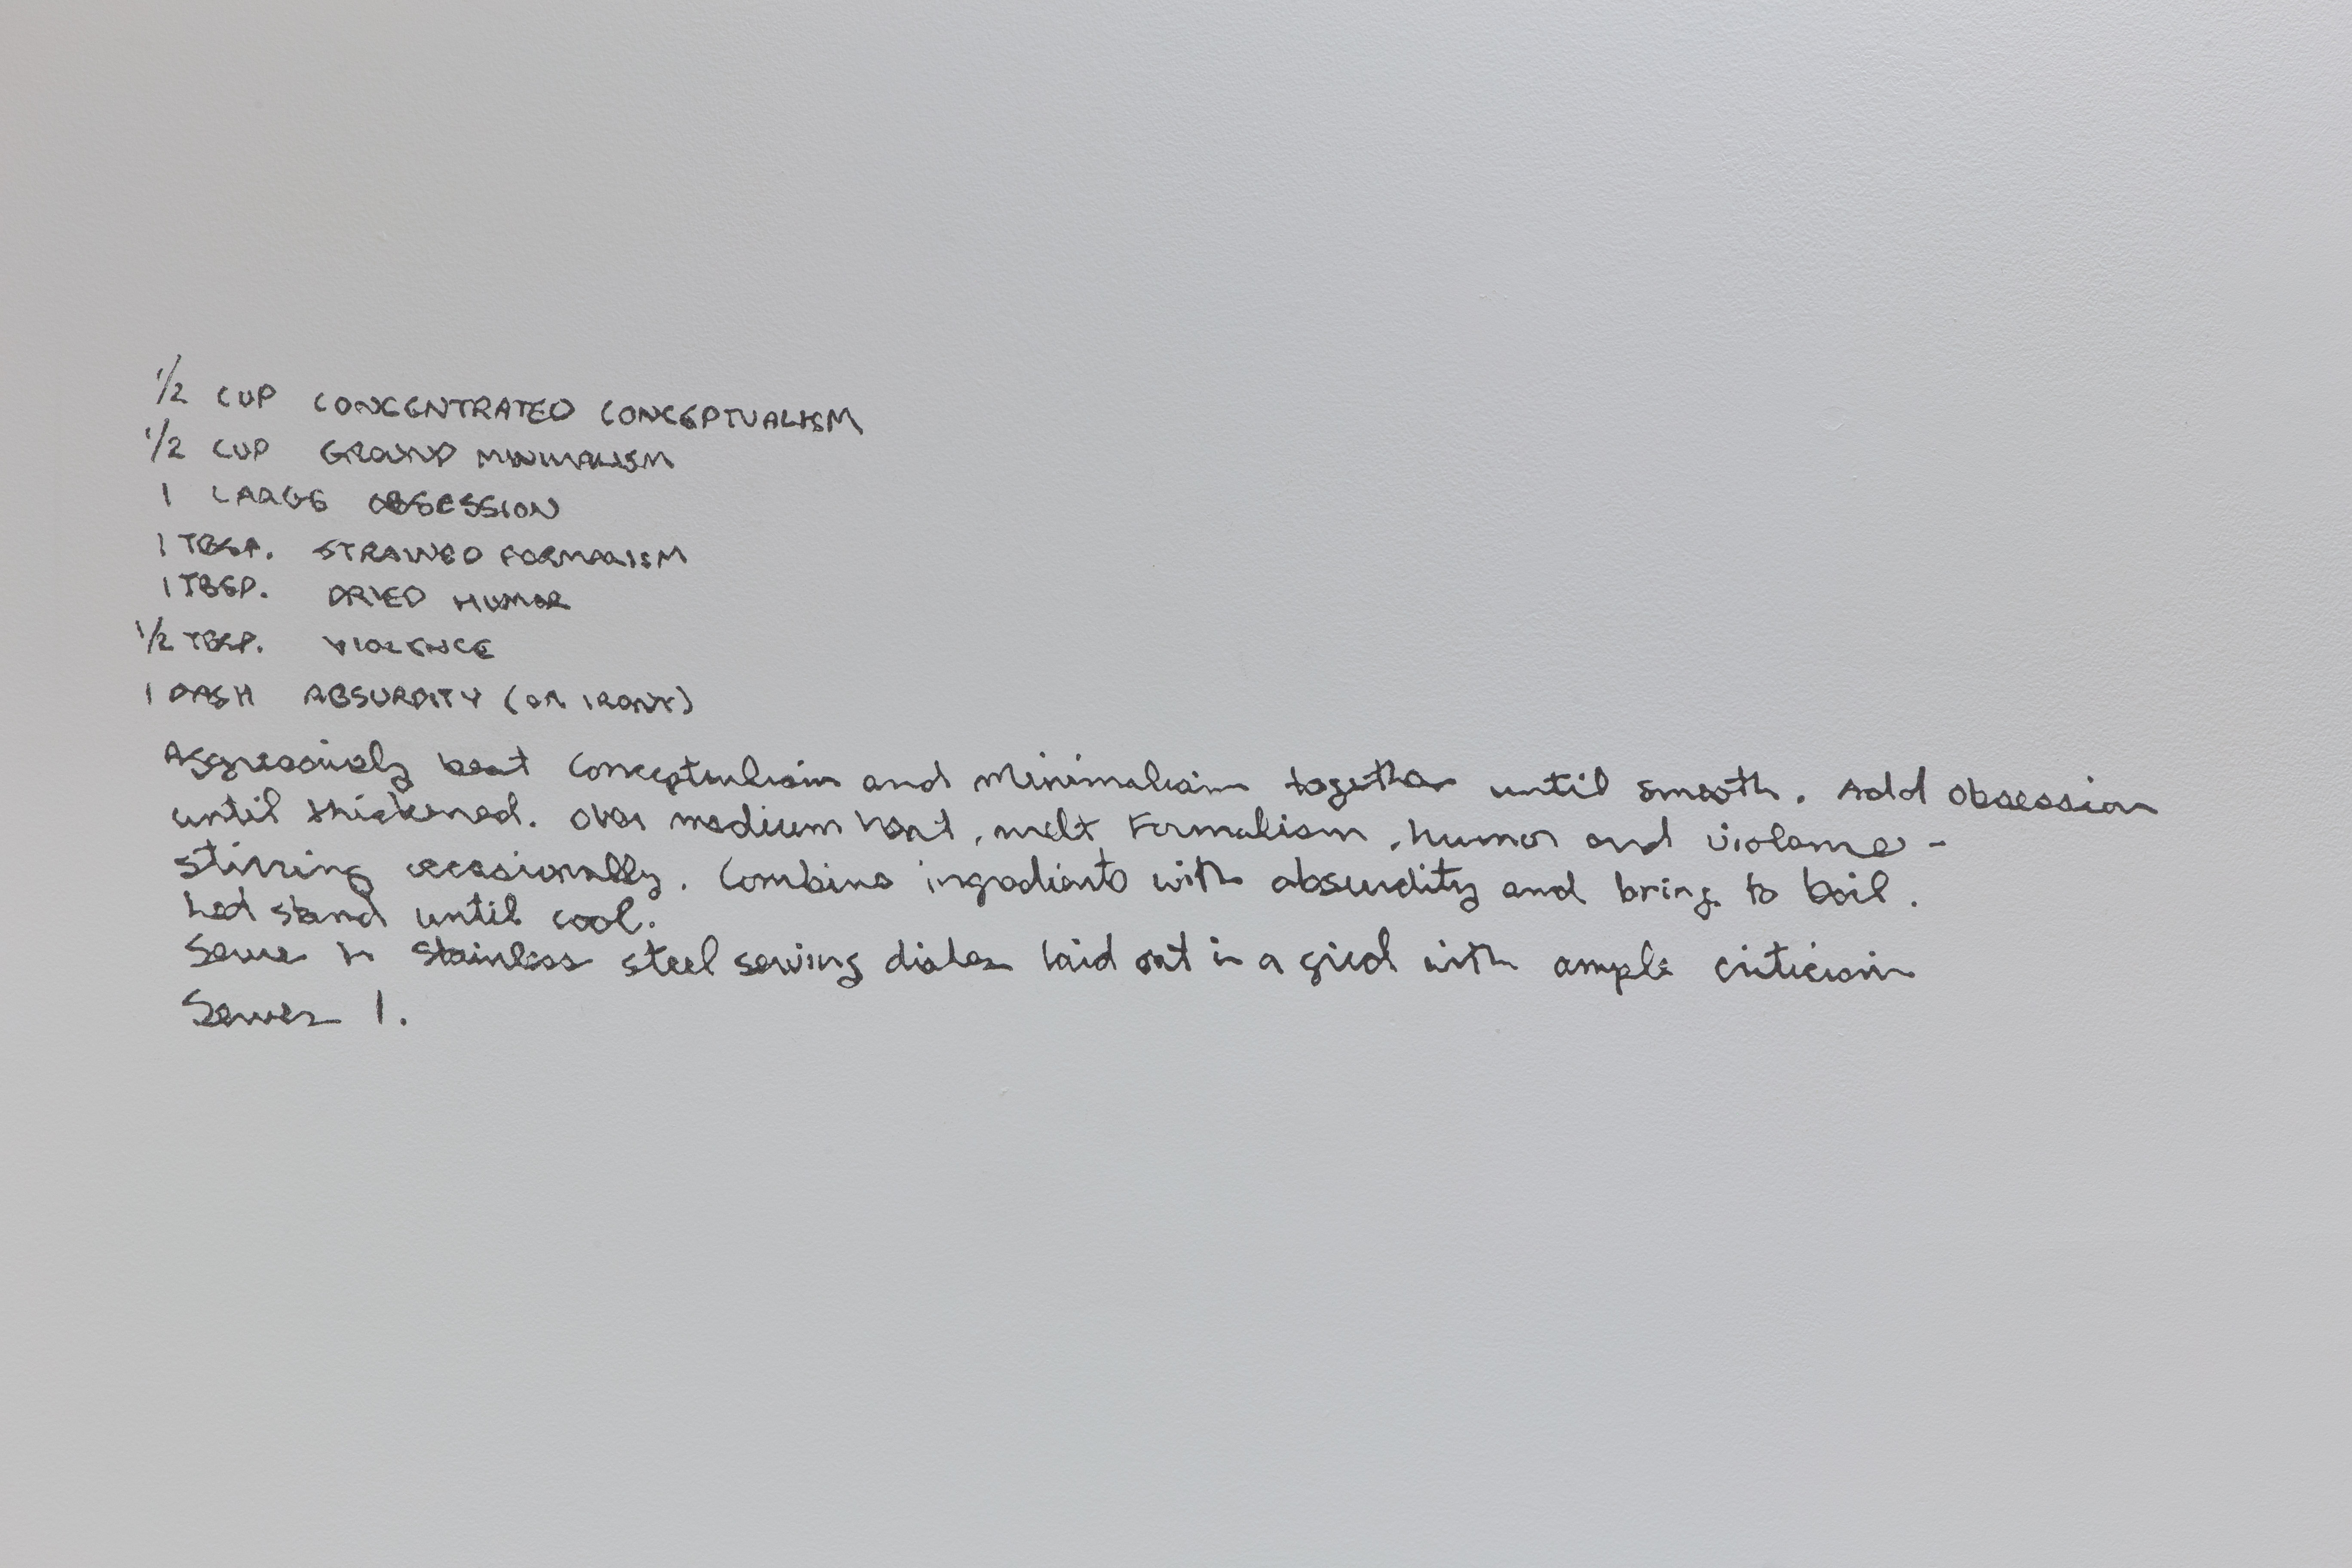 1/2 CUP CONCENTRATED CONCEPTUALISM
1/2 CUP GROUND MINIMALISM
1 LARGE OBSESSION
1 TBSP. STRAINED FORMALISM
1 TBSP. DRIED HUMOR
1/2 TBSP. VIOLENCE
1 DASH ABSURDITY (OR IRONY)
Aggressively beat Conceptualism and Minimalism together until smooth. Add Obsession
until thickened. Over medium heat, melt Formalism, humor and violence -
stirring occasionally. Combine ingredients with absurdity and bring to boil.
Let stand until cool.
Serve in stainless steel serving dishes laid out in a grid with ample criticism
Serves 1.